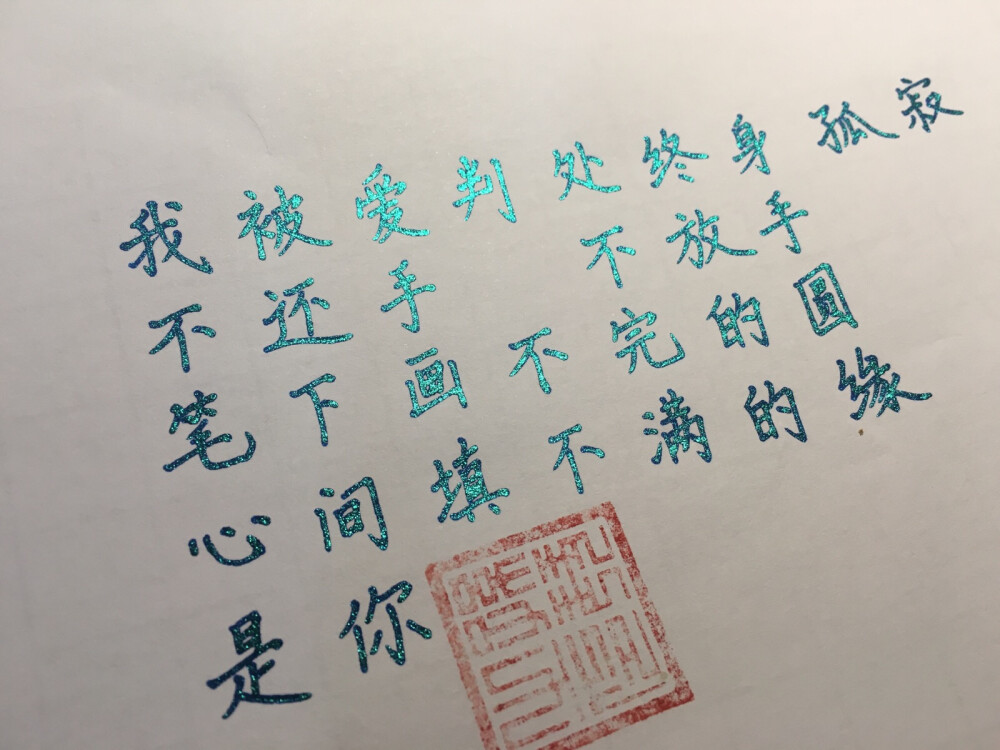 我被爱判处终身孤寂
不还手 不放手
笔下画不完的圆
心间填不满的缘
是你